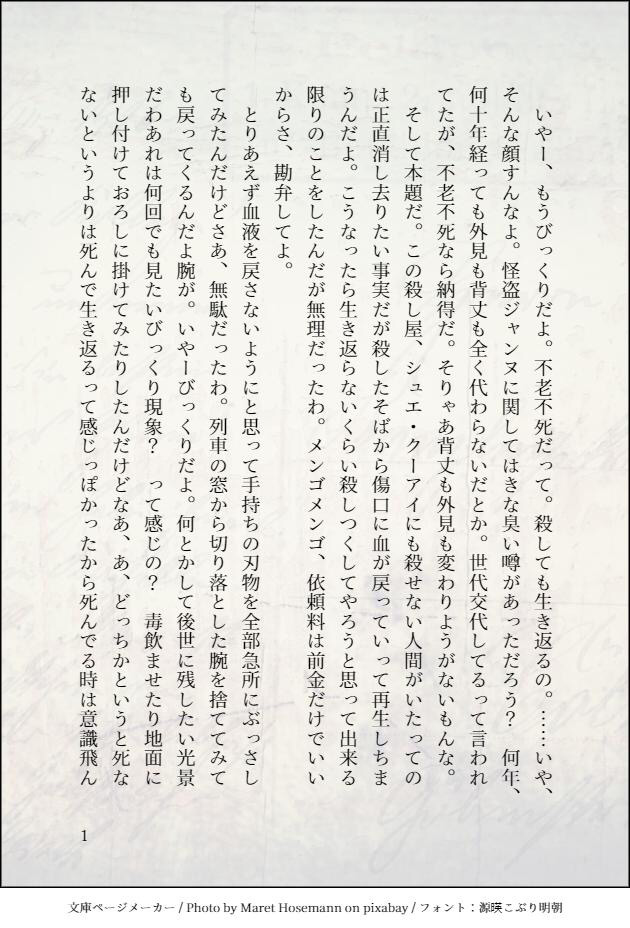 いやー、もうびっくりだよ。不老不死だって。殺しても生き返るの。……いや、
そんな顔すんなよ。怪盗ジャンヌに関してはきな臭い噂があっただろう？　何年、
何十年経っても外見も背丈も全く代わらないだとか。世代交代してるって言われ
てたが、不老不死なら納得だ。そりゃあ背丈も外見も変わりようがないもんな。
　そして本題だ。この殺し屋、シュエ・クーアイにも殺せない人間がいたっての
は正直消し去りたい事実だが殺したそばから傷口に血が戻っていって再生しちま
うんだよ。こうなったら生き返らないくらい殺しつくしてやろうと思って出来る
限りのことをしたんだが無理だったわ。メンゴメンゴ、依頼料は前金だけでいい
からさ、勘弁してよ。
　とりあえず血液を戻さないようにと思って手持ちの刃物を全部急所にぶっさし
てみたんだけどさあ、無駄だったわ。列車の窓から切り落とした腕を捨ててみて
も戻ってくるんだよ腕が。いやーびっくりだよ。何とかして後世に残したい光景
だわあれは何回でも見たいびっくり現象？　って感じの？　毒飲ませたり地面に
押し付けておろしに掛けてみたりしたんだけどなあ、あ、どっちかというと死な
ないというよりは死んで生き返るって感じっぽかったから死んでる時は意識飛ん
1
文庫ページメーカー / Photo by Maret Hosemann on pixabay / フォント：源暎こぶり明朝